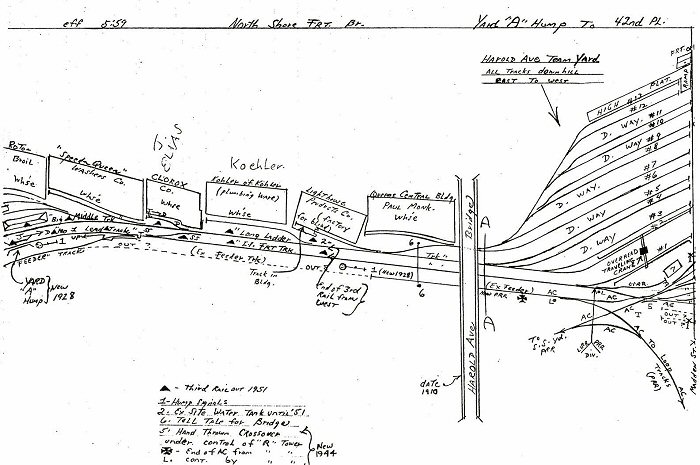 eff 5:59
North Shore FRT. Br.
Yard "A" Hump To 42nd Pl.
HAROLD Ave Team YARD
ALL Tracks downhill
EAST To WEST
HIGH PLAT.
#12
#11
D. WAY.
#10
#9
D. WAY
#8
#7
D. WAY.
#6
#5
D. WAY
#4
#3
D. WAY
OVERHEAD
TRAVELING
CRANE
#1
"Speed Queen"
Washers Co.
Whse
CLOROX
Co.
Whse
Koehler
Kohler of Kohler
(plumbing ware)
Whse
LightHouse
Products Co.
Queens Central Bldg.
PAUL Monk.
Whse
Bridge
"Long Ladder
FEEDER TRACK
OUT 3
(Ex. Feeder Trk)
Track in
Bldg.
OUT 3
1 (New 1928)
End of 3rd
Rail from
WEST
6
6
(Ex Feeder)
New PRR
AC
YARD
"A"
Hump
New
1928
HAROLD Ave
date
1910
To
S.S. Yd.
PRR
LIRR
PRR
DIV.
To Loop
Tracks
(PRR)
AC
▲ - Third Rail out 1951
1 - Hump Signals
2 - Ex Site Water Tank until '51
6 - Tell Tale for Bridge
5 - Hand Thrown Crossover
under control of "R" Tower
- End of AC from " "
L. cont. by " "
New
1944